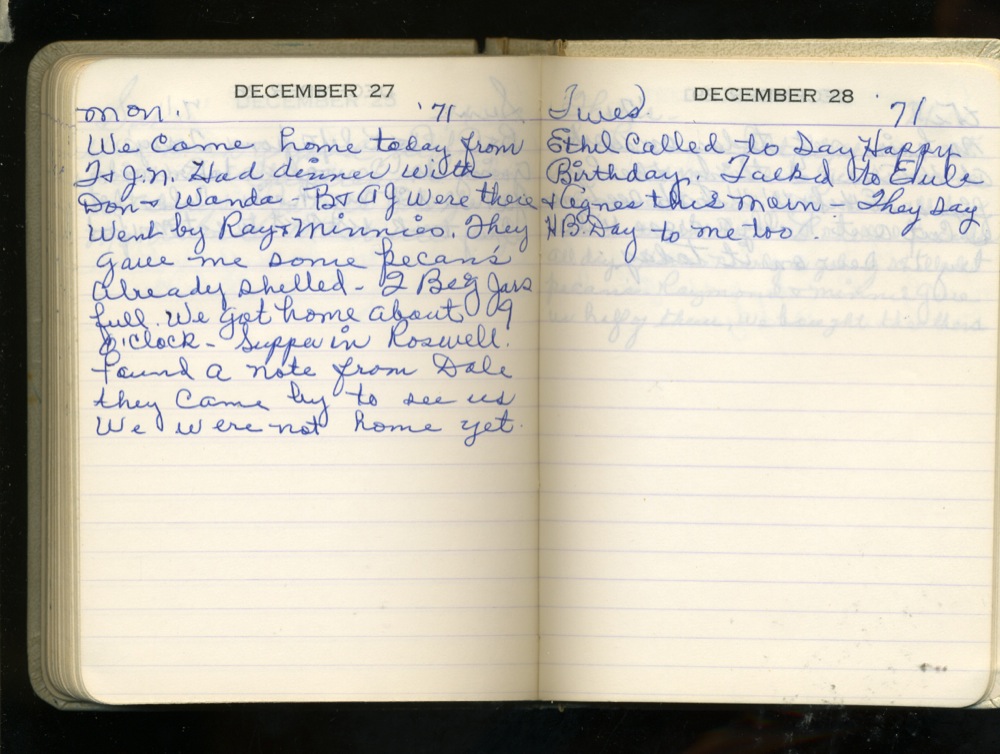 DECEMBER 27
Mon. '71
We Come home today from
T & J.N. Had dinner with
Don & Wanda - B & AJ were there
Went by Ray & Minnies. They
gave me some pecan's
Already shelled - 2 Beg Jars
full. We got home about 9
O'clock - Supper in Roswell.
Found a note from Dale
they Came by to see us
We were not home yet.
DECEMBER 28
Twes. 71
Ethel Called to Say Happy
Birthday. Talked to
& Agnes this morn - They say
H.B. Day to me too.